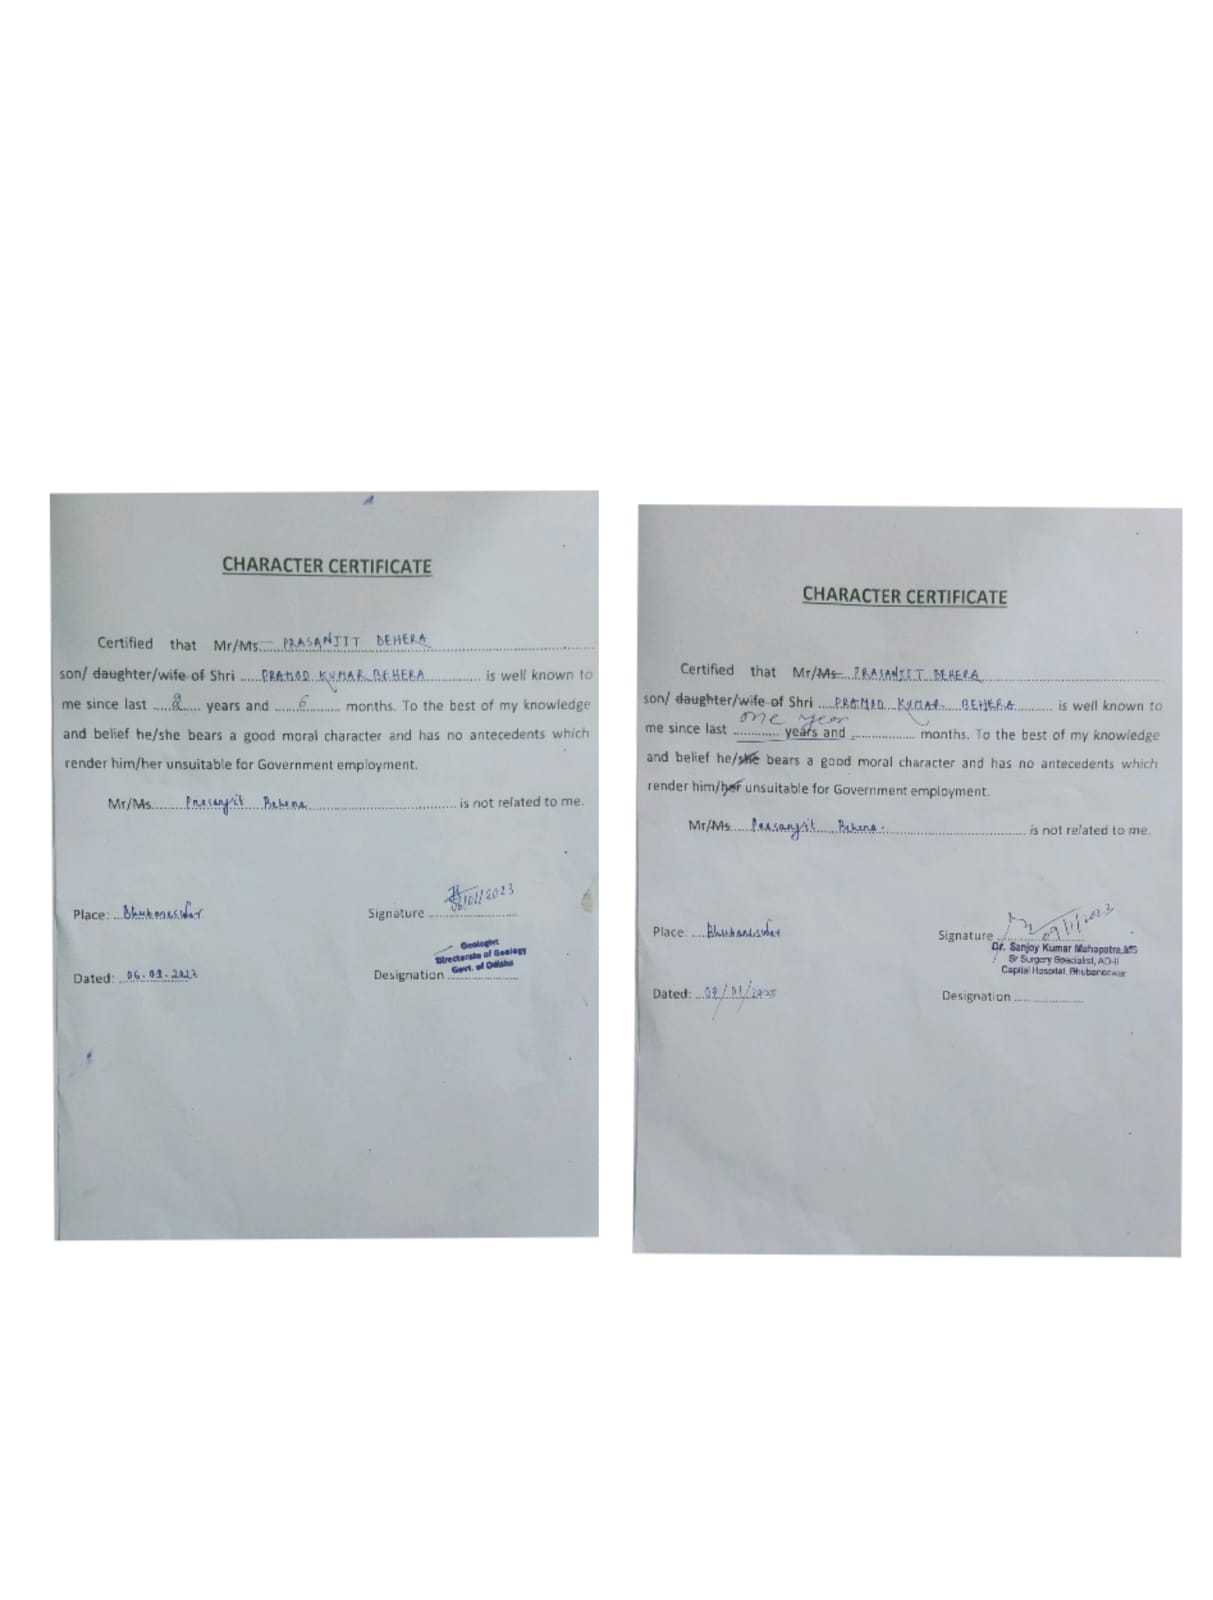 CHARACTER CERTIFICATE
Certified that Mr/Ms. PRASANJIT BEHERA
son/ daughter/wife of Shri PRAMOD KUMAR BEHERA is well known to
me since last 2 years and 6 months. To the best of my knowledge
and belief he/she bears a good moral character and has no antecedents which
render him/her unsuitable for Government employment.
Mr/Ms Prasanjit Behera is not related to me.
Place: Bhubaneswar
Signature 06/01/2023
Geologist
Directorate of Geology
Govt. of Odisha
Designation
Dated: 06.01.2023
CHARACTER CERTIFICATE
Certified that Mr/Ms PRASANJIT BEHERA
son/ daughter/wife of Shri PRAMOD KUMAR BEHERA is well known to
one year
me since last years and months. To the best of my knowledge
and belief he/she bears a good moral character and has no antecedents which
render him/her unsuitable for Government employment.
Mr/Ms Prasanjit Behera is not related to me.
Place: Bhubaneswar
Signature 09/1/2023
Dr. Sanjoy Kumar Mahapatra, MS
Sr Surgery Specialist, AD-II
Capital Hospital, Bhubaneswar
Dated: 09/01/2023
Designation